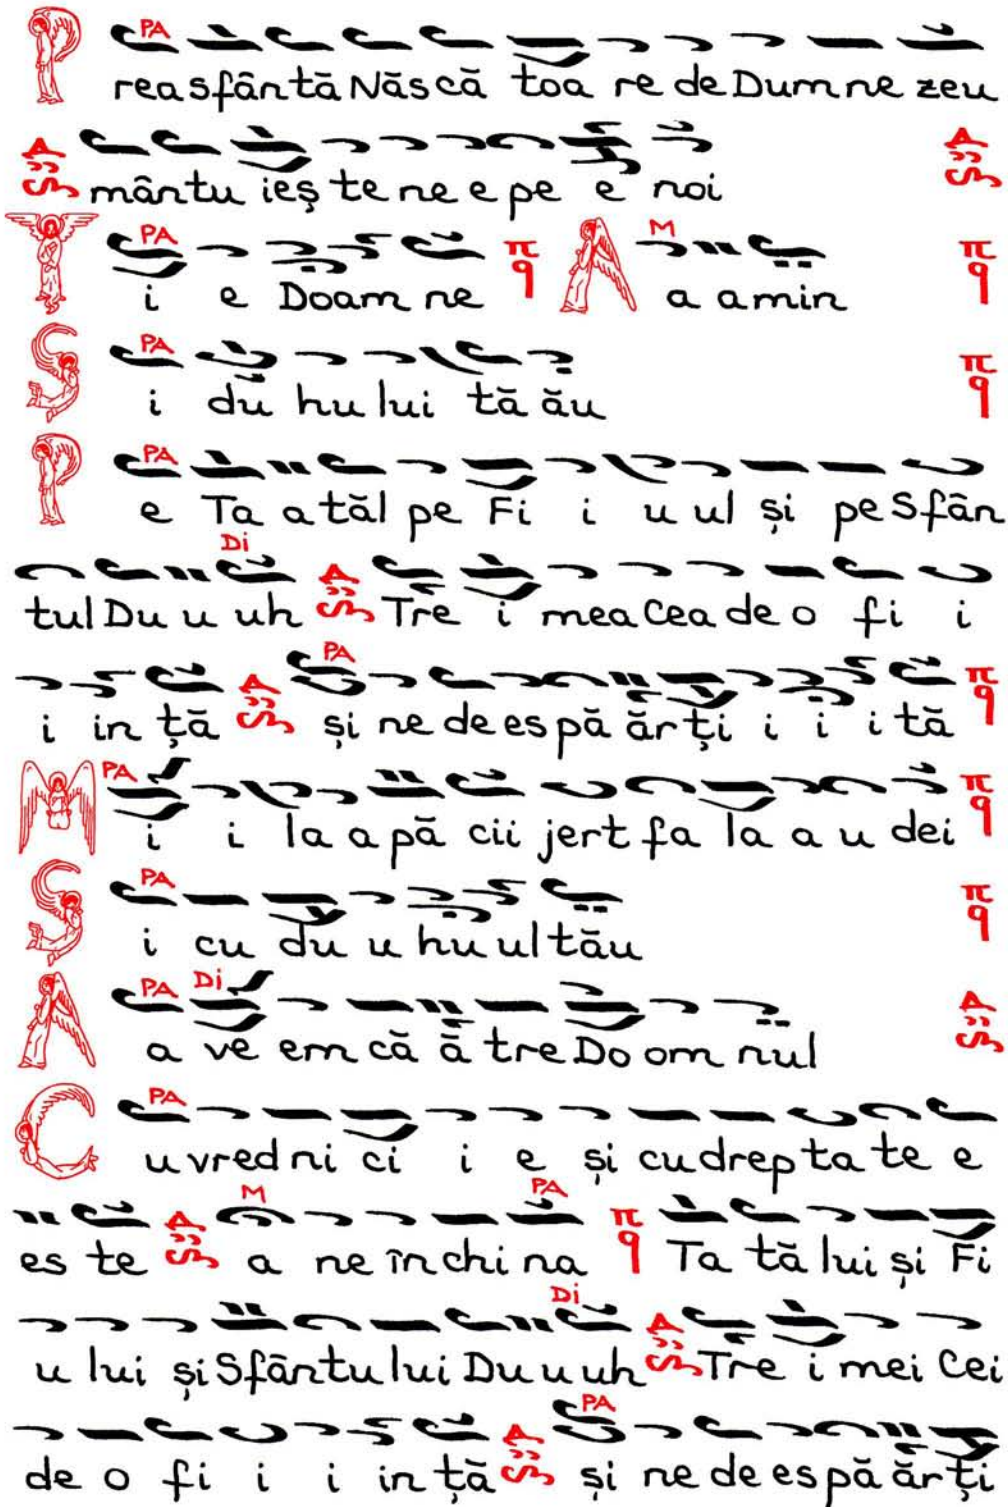 PA
P reasfântă Născă toa re de Dum ne zeu
mântu ieș te ne e pe e noi
PA M
T i e Doam ne π q A a amin π q
PA
S i du hu lui tă ău π q
PA
P e Ta a tăl pe Fi i u ul și pe Sfân
Di
tul Du u uh Tre i mea Cea de o fi i
PA
i in ță și ne de es pă ăr ți i i i tă π q
PA
M i i la a pă cii jert fa la a u dei π q
PA
S i cu du u hu ul tău π q
PA Di
A a ve em că ă tre Do om nul
PA
C u vred ni ci i e și cu drep ta te e
M PA
es te a ne închi na π q Ta tă lui și Fi
Di
u lui și Sfântu lui Du u uh Tre i mei Cei
PA
de o fi i i in ță și ne de es pă ăr ți